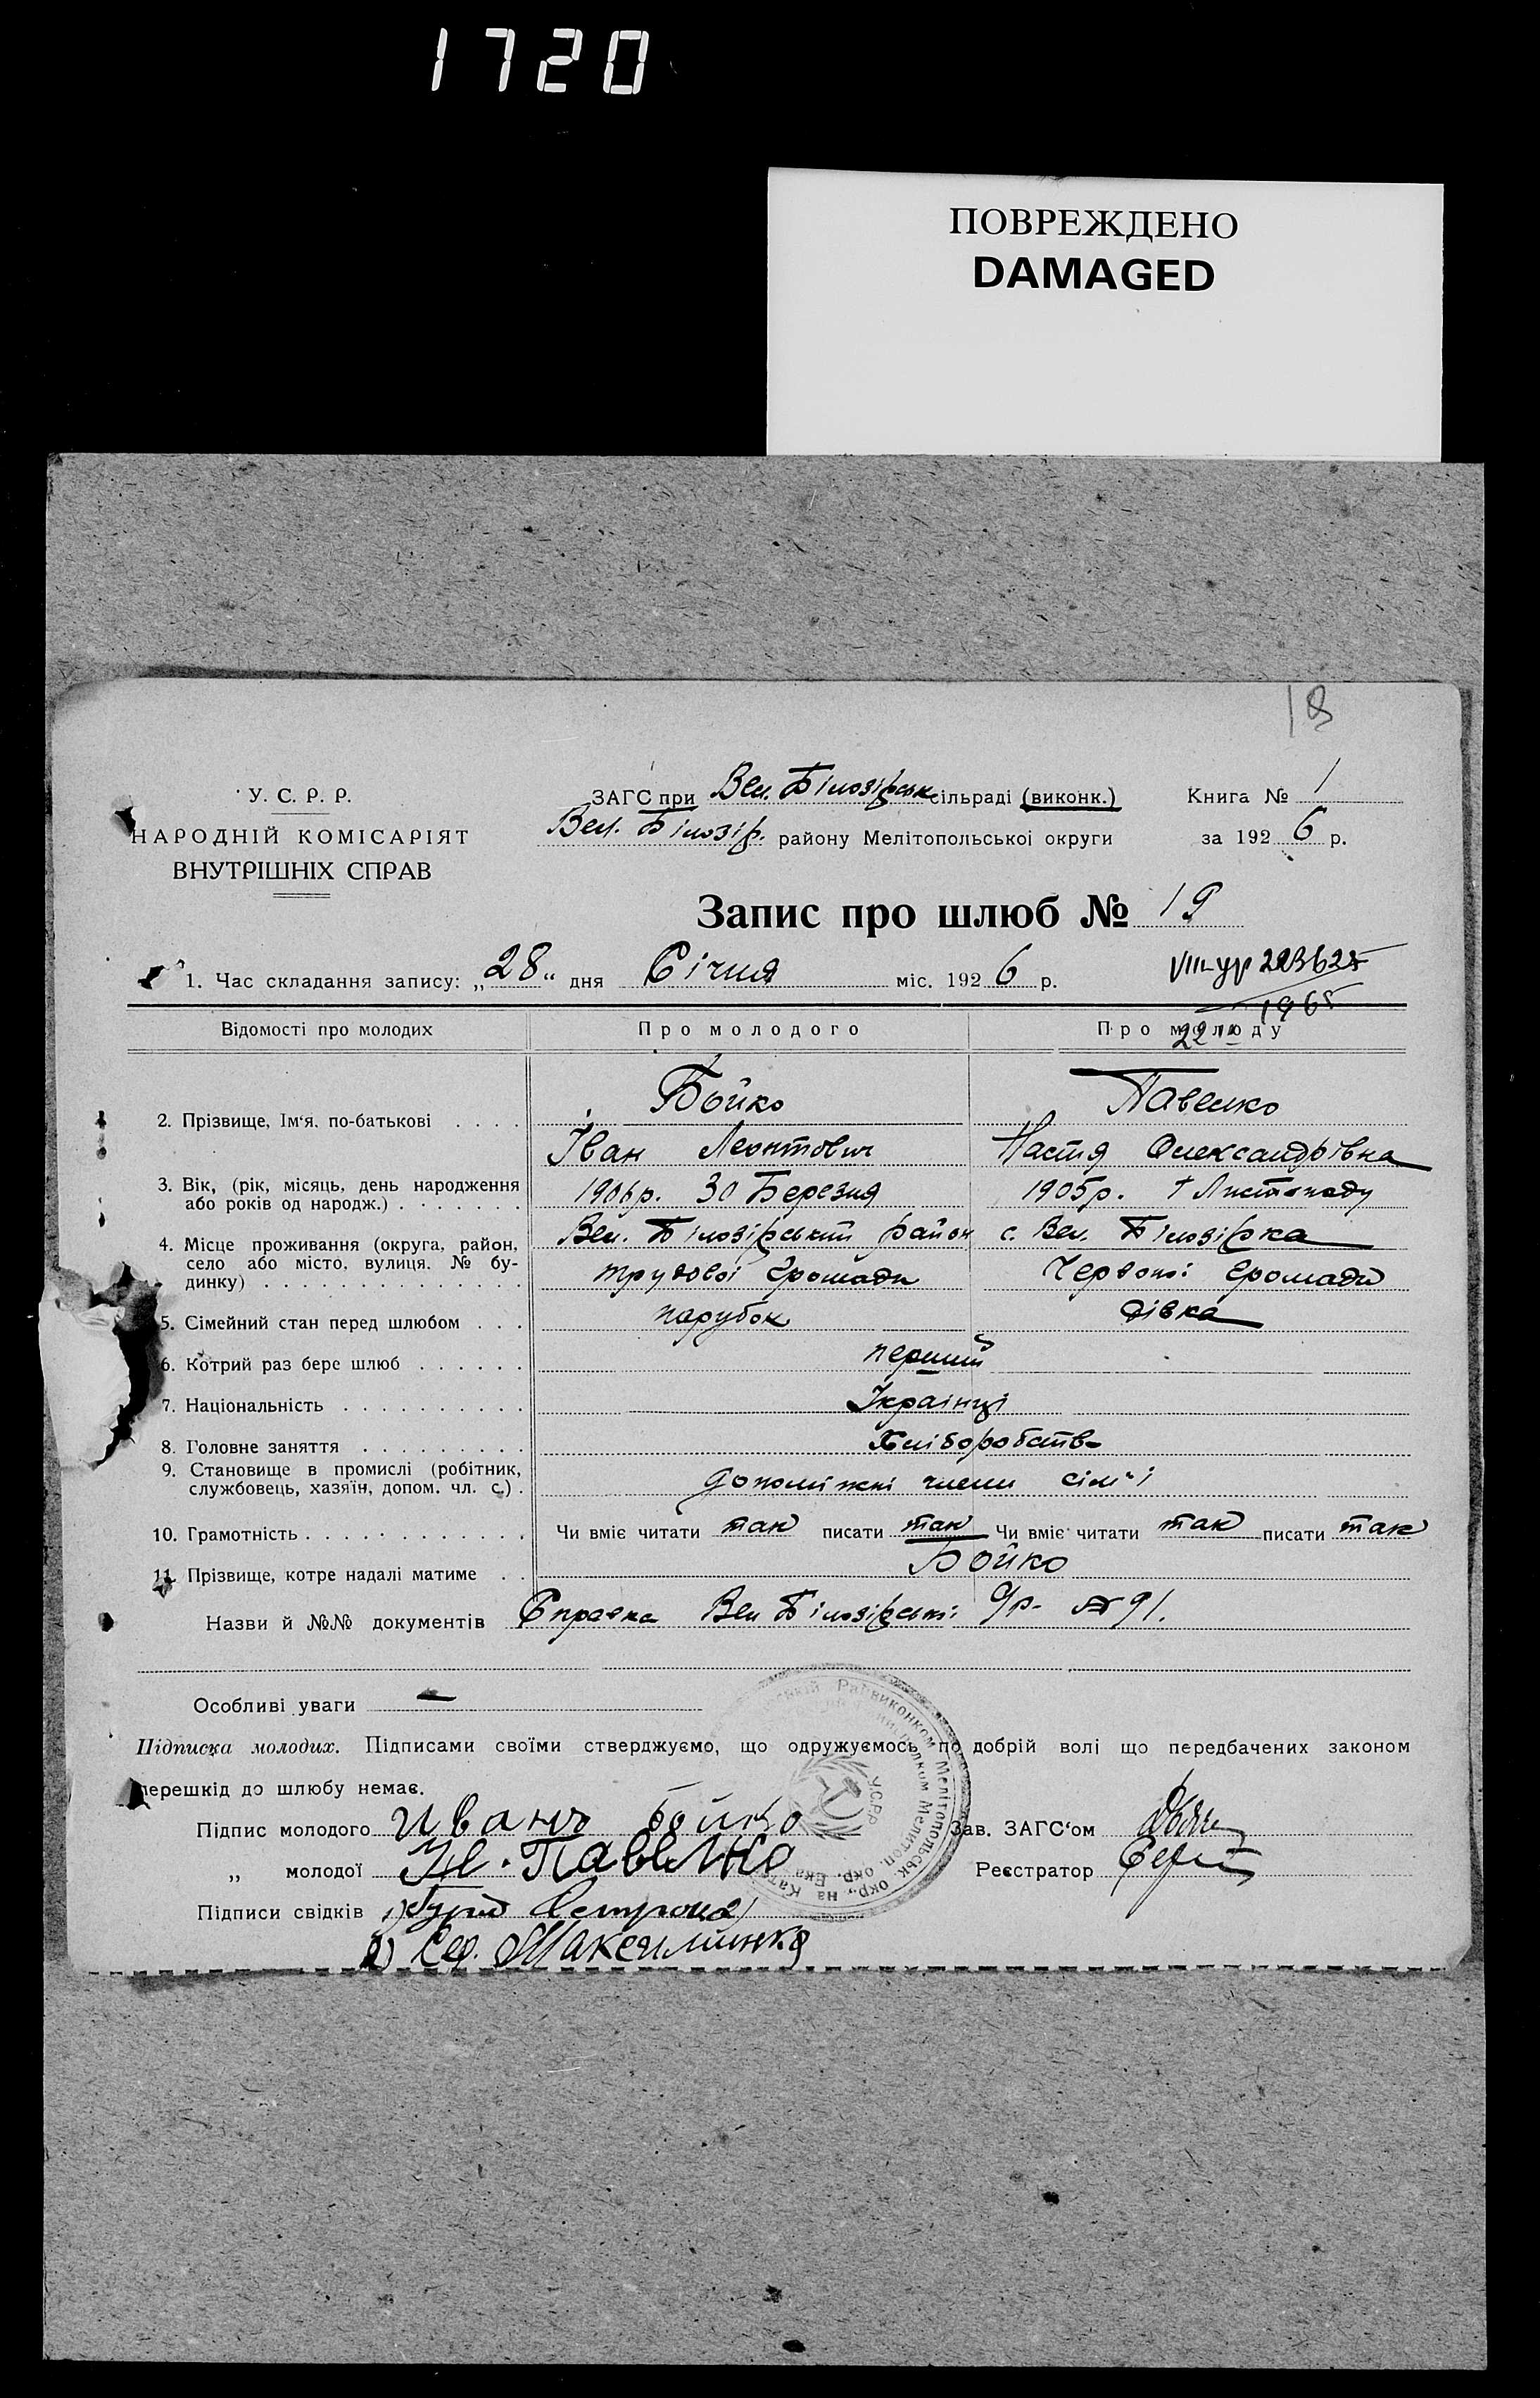 1720
ПОВРЕЖДЕНО
DAMAGED
18
У. С. Р. Р.
НАРОДНІЙ КОМІСАРІЯТ
ВНУТРІШНІХ СПРАВ
ЗАГС при Вел. Білозірськ сільраді (виконк.)
Вел. Білозір. району Мелітопольської округи
Книга № 1
за 1926 р.
Запис про шлюб № 19
1. Час складання запису: „28“ дня Січня міс. 1926 р.
VIII-УР 223625
1965
22
Відомості про молодих
Про молодого
Про молоду
2. Прізвище, Ім‘я, по-батькові . . . .
Бойко
Павенко
Іван Леонтович
Настя Олександрівна
3. Вік, (рік, місяць, день народження
або років од народж.) . . . . . . .
1906р. 30 Березня
1905р. Листопаду
4. Місце проживання (округа, район,
село або місто, вулиця. № бу-
динку) . . . . . . . . . . . . . .
Вел. Білозірський район
трудової громади
с. Вел. Білозірка
Червоної громади
5. Сімейний стан перед шлюбом . . .
парубок
дівка
6. Котрий раз бере шлюб . . . . . .
перший
7. Національність . . . . . . . . . .
Українці
8. Головне заняття . . . . . . . . .
Хліборобство
9. Становище в промислі (робітник,
службовець, хазяїн, допом. чл. с.) .
допоміжні члени сім'ї
10. Грамотність . . . . . . . . . . . .
Чи вміє читати так писати так Чи вміє читати так писати так
11. Прізвище, котре надалі матиме . .
Бойко
Назви й №№ документів Справка Вел Білозірської № 91.
Особливі уваги —
Підписка молодих. Підписами своїми стверджуємо, що одружуємось по добрій волі що передбачених законом
перешкід до шлюбу немає.
Підпис молодого Иванъ Бойко
Зав. ЗАГС‘ом
„ молодої Н. Павенко
Реєстратор
Підписи свідків 1)
2)
У.С.Р.Р.